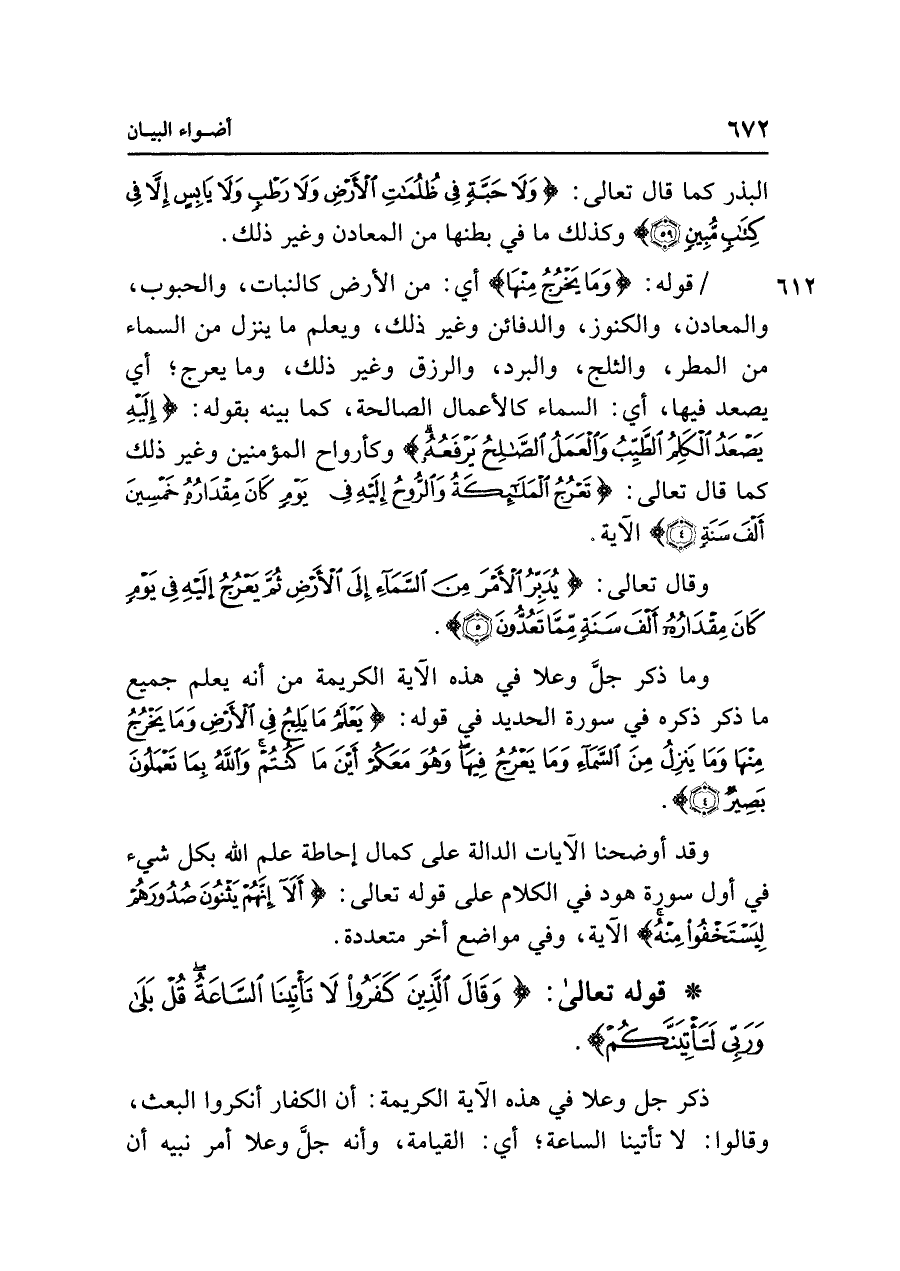 ٦٧٢ أضواء البيان
البذر كما قال تعالى: ﴿وَلَا حَبَّةٍ فِي ظُلُمَٰتِ ٱلْأَرْضِ وَلَا رَطْبٍ وَلَا يَابِسٍ إِلَّا فِي
كِتَٰبٍ مُّبِينٍ ٥٩﴾ وكذلك ما في بطنها من المعادن وغير ذلك.
٦١٢ / قوله: ﴿وَمَا يَخْرُجُ مِنْهَا﴾ أي: من الأرض كالنبات، والحبوب،
والمعادن، والكنوز، والدفائن وغير ذلك، ويعلم ما ينزل من السماء
من المطر، والثلج، والبرد، والرزق وغير ذلك، وما يعرج؛ أي
يصعد فيها، أي: السماء كالأعمال الصالحة، كما بينه بقوله: ﴿إِلَيْهِ
يَصْعَدُ ٱلْكَلِمُ ٱلطَّيِّبُ وَٱلْعَمَلُ ٱلصَّٰلِحُ يَرْفَعُهُۥۚ﴾ وكأرواح المؤمنين وغير ذلك
كما قال تعالى: ﴿تَعْرُجُ ٱلْمَلَٰٓئِكَةُ وَٱلرُّوحُ إِلَيْهِ فِي يَوْمٍ كَانَ مِقْدَارُهُۥ خَمْسِينَ
أَلْفَ سَنَةٍ ٤﴾ الآية.
وقال تعالى: ﴿يُدَبِّرُ ٱلْأَمْرَ مِنَ ٱلسَّمَآءِ إِلَى ٱلْأَرْضِ ثُمَّ يَعْرُجُ إِلَيْهِ فِي يَوْمٍ
كَانَ مِقْدَارُهُۥٓ أَلْفَ سَنَةٍ مِّمَّا تَعُدُّونَ ٥﴾.
وما ذكر جلَّ وعلا في هذه الآية الكريمة من أنه يعلم جميع
ما ذكر ذكره في سورة الحديد في قوله: ﴿يَعْلَمُ مَا يَلِجُ فِي ٱلْأَرْضِ وَمَا يَخْرُجُ
مِنْهَا وَمَا يَنزِلُ مِنَ ٱلسَّمَآءِ وَمَا يَعْرُجُ فِيهَاۖ وَهُوَ مَعَكُمْ أَيْنَ مَا كُنتُمْۚ وَٱللَّهُ بِمَا تَعْمَلُونَ
بَصِيرٌ ٤﴾.
وقد أوضحنا الآيات الدالة على كمال إحاطة علم الله بكل شيء
في أول سورة هود في الكلام على قوله تعالى: ﴿أَلَآ إِنَّهُمْ يَثْنُونَ صُدُورَهُمْ
لِيَسْتَخْفُوا۟ مِنْهُۚ﴾ الآية، وفي مواضع أخر متعددة.
* قوله تعالىٰ: ﴿وَقَالَ ٱلَّذِينَ كَفَرُوا۟ لَا تَأْتِينَا ٱلسَّاعَةُۖ قُلْ بَلَىٰ
وَرَبِّي لَتَأْتِيَنَّكُمْ﴾.
ذكر جل وعلا في هذه الآية الكريمة: أن الكفار أنكروا البعث،
وقالوا: لا تأتينا الساعة؛ أي: القيامة، وأنه جلَّ وعلا أمر نبيه أن